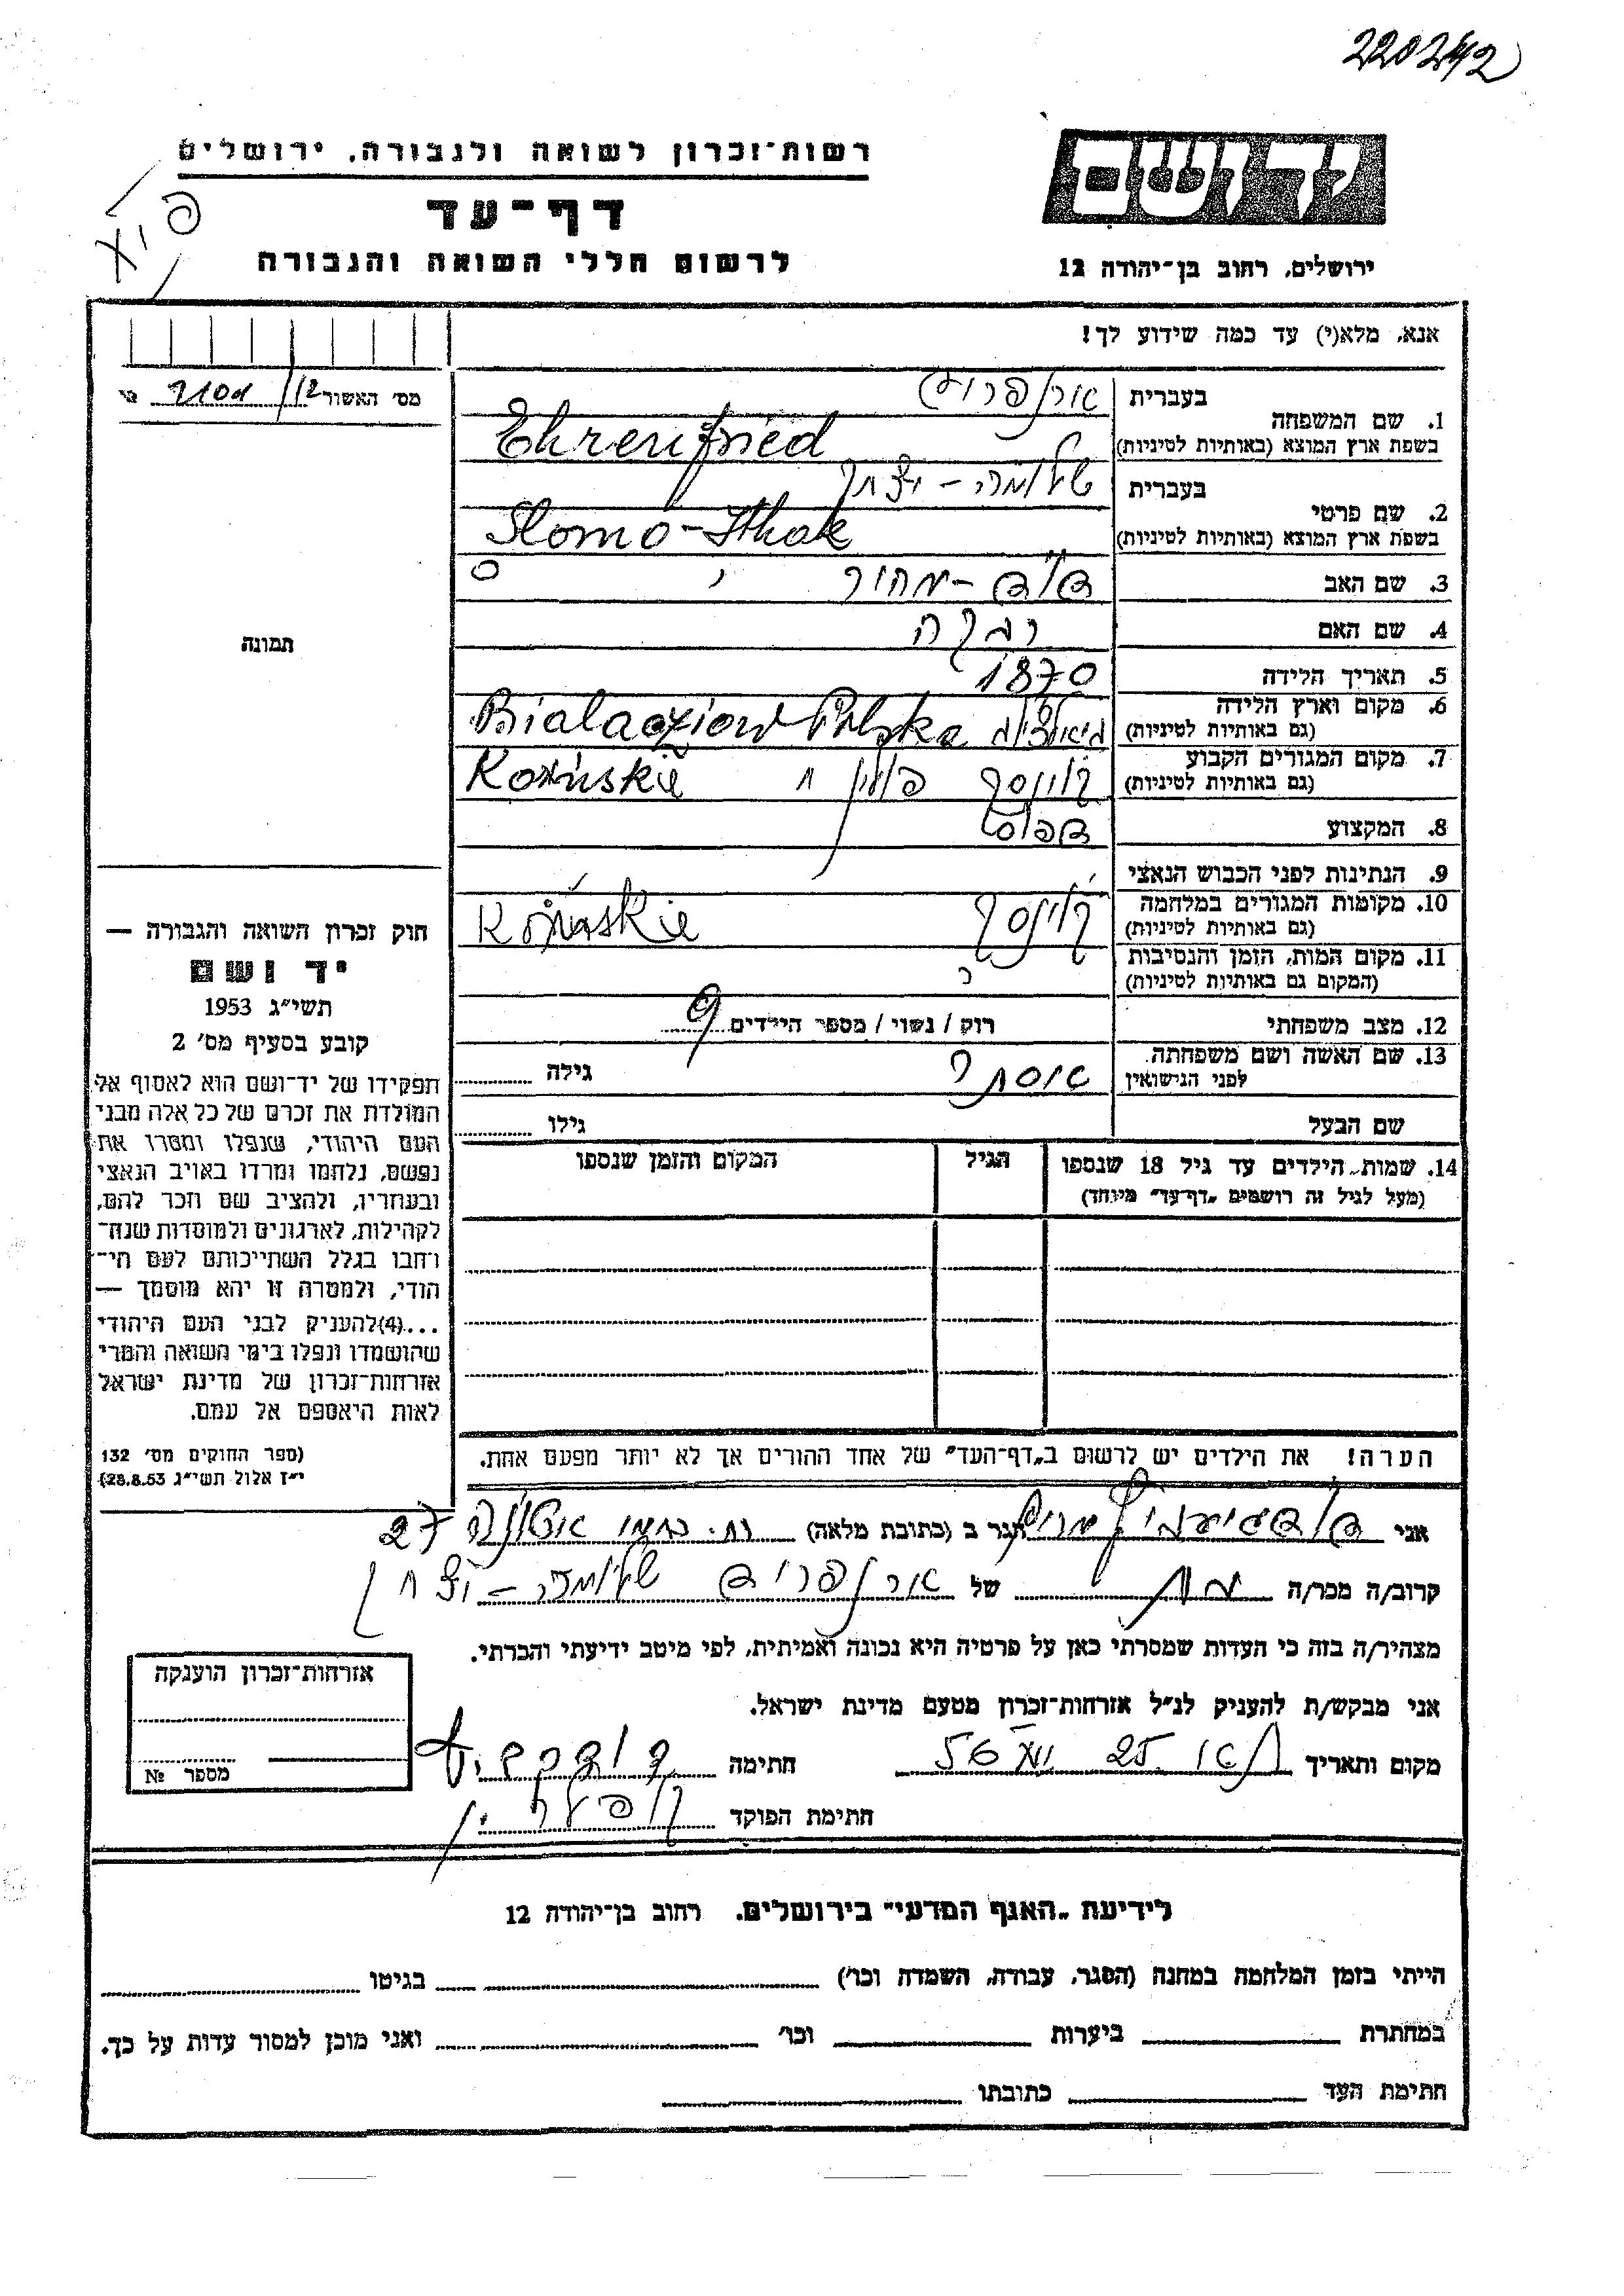 220242
רשות־זכרון לשואה ולגבורה. ירושלים
דף־עד
לרשום חללי השואה והגבורה
יד ושם
ירושלים, רחוב בן־יהודה 12
אנא, מלא(י) עד כמה שידוע לך!
מס׳ האשור
1. שם המשפחה
בעברית
בשפת ארץ המוצא (באותיות לטיניות) Ehrenfried
2. שם פרטי
בעברית שלמה – יצחק
בשפת ארץ המוצא (באותיות לטיניות) Slomo-Ithak
3. שם האב
4. שם האם רבקה
5. תאריך הלידה 1870
6. מקום וארץ הלידה
(גם באותיות לטיניות) Polska
7. מקום המגורים הקבוע
(גם באותיות לטיניות) פולין
8. המקצוע
9. הנתינות לפני הכבוש הנאצי
10. מקומות המגורים במלחמה
(גם באותיות לטיניות)
11. מקום המות, הזמן והנסיבות
(המקום גם באותיות לטיניות)
12. מצב משפחתי רוק / נשוי / מספר הילדים 9
13. שם האשה ושם משפחתה
לפני הנישואין אסתר גילה
שם הבעל גילו
14. שמות הילדים עד גיל 18 שנספו
(מעל לגיל זה רושמים „דף־עד" מיוחד)
הגיל
המקום והזמן שנספו
הערה! את הילדים יש לרשום ב„דף־העד" של אחד ההורים אך לא יותר מפעם אחת.
תמונה
חוק זכרון השואה והגבורה —
יד ושם
תשי״ג 1953
קובע בסעיף מס׳ 2
תפקידו של יד־ושם הוא לאסוף אל
המולדת את זכרם של כל אלה מבני
העם היהודי, שנפלו ומסרו את
נפשם, נלחמו ומרדו באויב הנאצי
ובעוזריו, ולהציב שם וזכר להם,
לקהילות, לארגונים ולמוסדות שנח־
רבו בגלל השתייכותם לעם הי־
הודי, ולמטרה זו יהא מוסמך —
...(4)להעניק לבני העם היהודי
שהושמדו ונפלו בימי השואה והמרי
אזרחות־זכרון של מדינת ישראל
לאות היאספם אל עמם.
(ספר החוקים מס׳ 132
י״ז אלול תשי״ג 28.8.53)
אני הגר ב (כתובת מלאה) 27
קרוב/ה מכר/ה בת של שלמה – יצחק
מצהיר/ה בזה כי העדות שמסרתי כאן על פרטיה היא נכונה ואמיתית, לפי מיטב ידיעתי והכרתי.
אני מבקש/ת להעניק לנ״ל אזרחות־זכרון מטעם מדינת ישראל.
מקום ותאריך חתימה
חתימת הפוקד
אזרחות־זכרון הוענקה
מספר №
לידיעת „האגף המדעי" בירושלים. רחוב בן־יהודה 12
הייתי בזמן המלחמה במחנה (הסגר, עבודה, השמדה וכו׳) בגיטו
במחתרת ביערות וכו׳ ואני מוכן למסור עדות על כך.
חתימת העד כתובתו